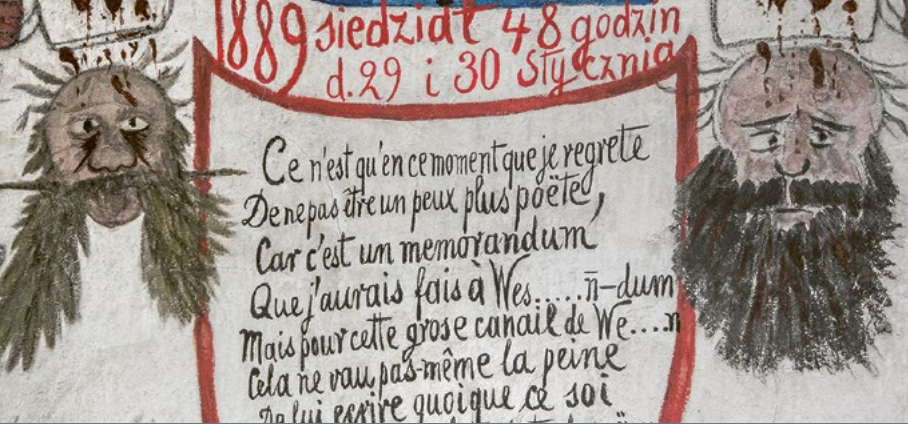 1889 siedział 48 godzin
d. 29 i 30 Stycznia
Ce n'est qu'en ce moment que je regrete
De ne pas être un peux plus poëte,
Car c'est un memorandum
Que j'aurais fais à Wes.....n̄-dum
Mais pour cette grose canail de We....n
Cela ne vau pas-même la peine
De lui esrire quoique ce soi